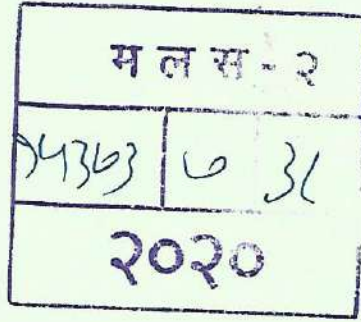 म ल स - २
१५३७३ ७ ३८
२०२०